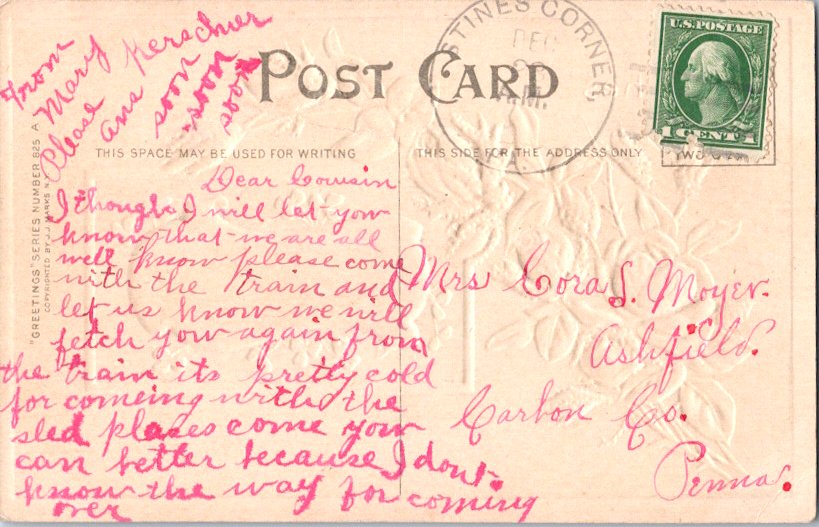 From
Mary Kerschner
Please ans soon
soon
soon
POST CARD
STINES CORNER,
DEC
A.M.
U.S. POSTAGE
1 CENT 1
THIS SPACE MAY BE USED FOR WRITING
THIS SIDE FOR THE ADDRESS ONLY
"GREETINGS" SERIES NUMBER 825 A
COPYRIGHTED BY J.J. MARKS N.Y.
Dear Cousin
I thought I will let you
know that we are all
well know please come
with the train and
let us know we will
fetch you again from
the train its pretty cold
for comeing with the
sled please come you
can better because I dont
know the way for coming
over
Mrs Cora S. Moyer.
Ashfield.
Carbon Co.
Penna.